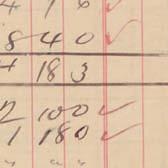 4 1 6 ✓
8 4 0 ✓
4 18 3
2 100 ✓
1 180 ✓
" " "